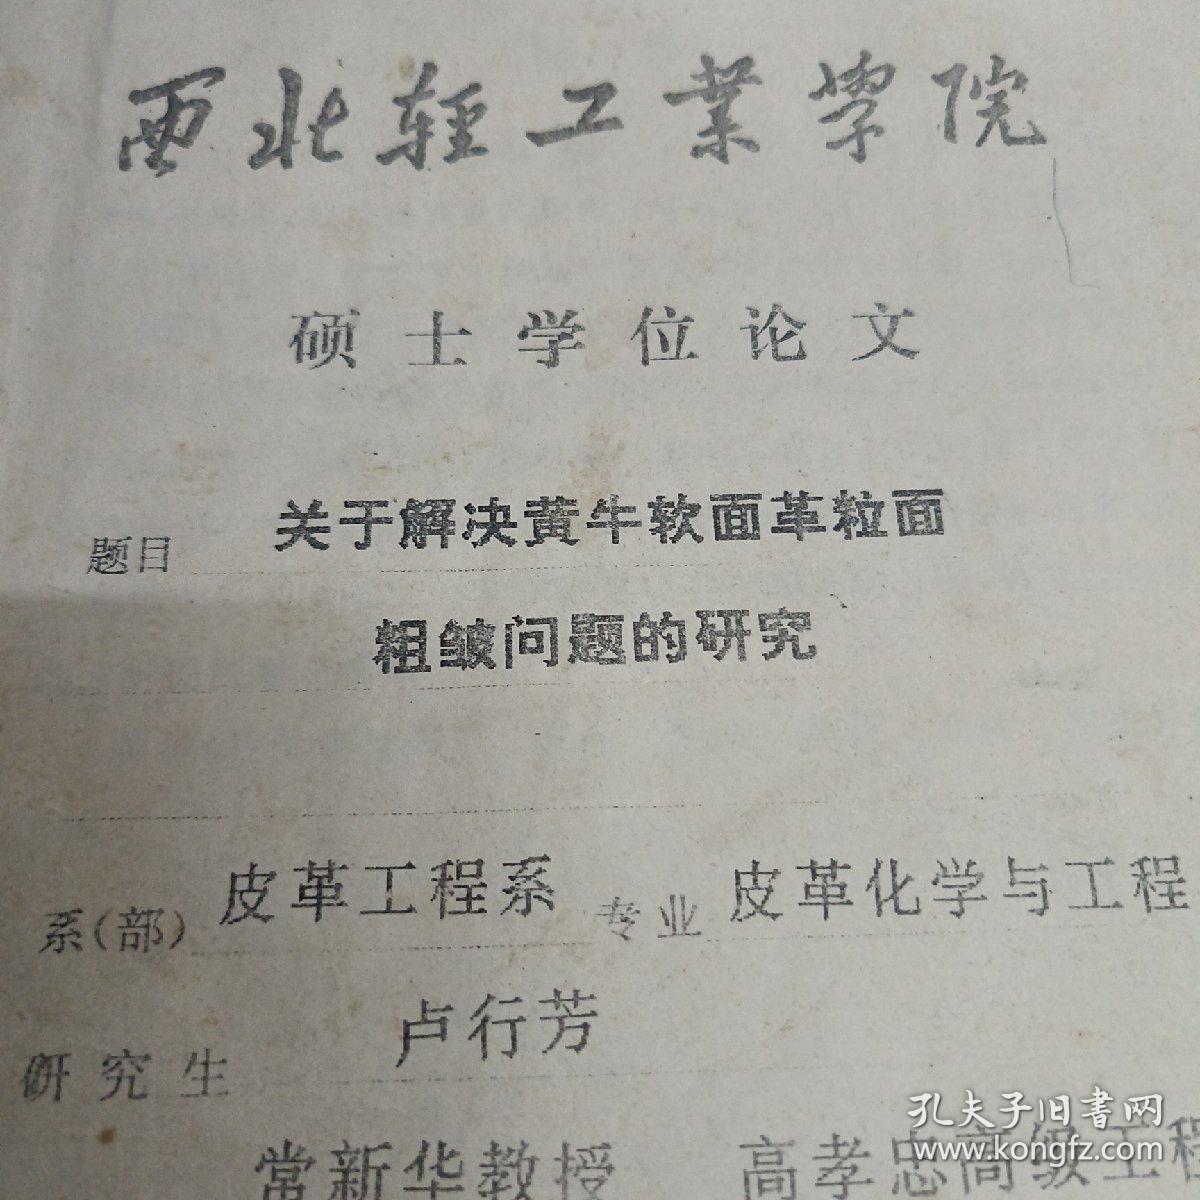 西北轻工業学院
硕士学位论文
题目 关于解决黄牛软面革粒面
粗皱问题的研究
系(部) 皮革工程系 专业 皮革化学与工程
研究生 卢行芳
常新华教授 高孝忠高级工程
孔夫子旧书网
www.kongfz.com